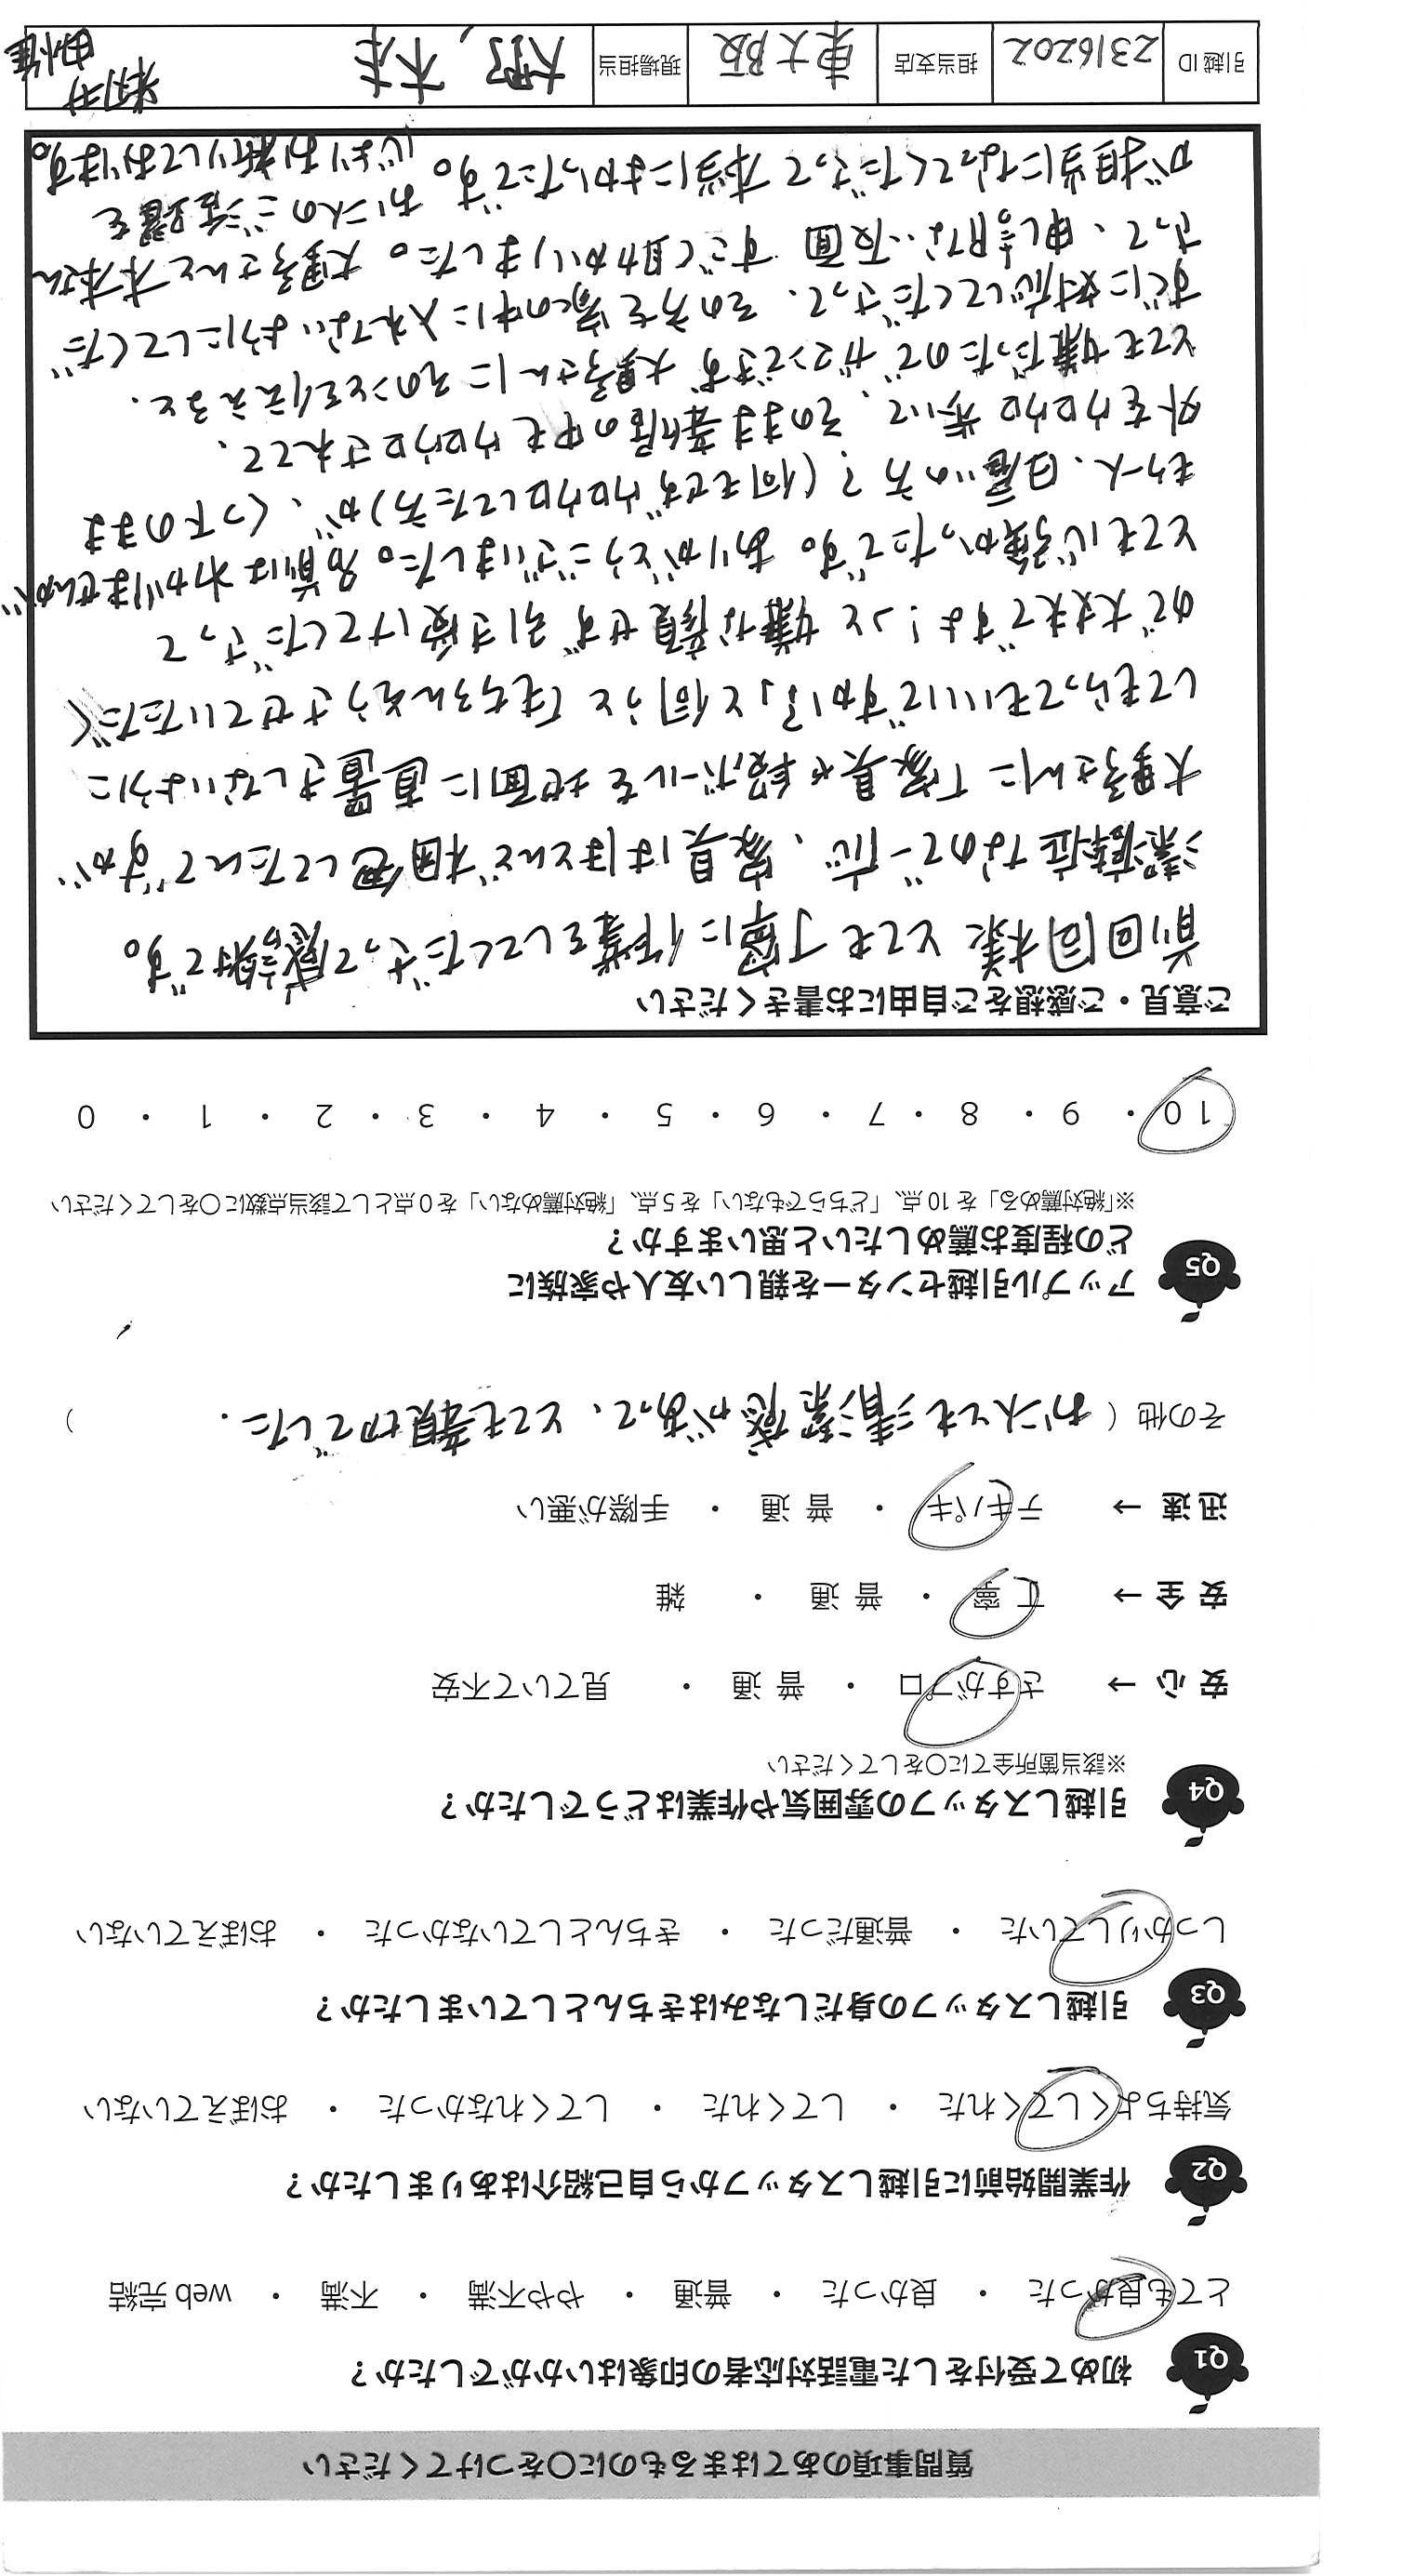 質問事項のあてはまるものに○をつけてください
Q1 初めて受付をした電話対応者の印象はいかがでしたか？
とても良かった ・ 良かった ・ 普通 ・ やや不満 ・ 不満 ・ web完結
Q2 作業開始前に引越しスタッフから自己紹介はありましたか？
気持ちよくしてくれた ・ してくれた ・ してくれなかった ・ おぼえていない
Q3 引越しスタッフの身だしなみはきちんとしていましたか？
しっかりしていた ・ 普通だった ・ きちんとしていなかった ・ おぼえていない
Q4 引越しスタッフの雰囲気や作業はどうでしたか？
※該当箇所全てに○をしてください
安心 → さすがプロ ・ 普通 ・ 見ていて不安
安全 → 丁寧 ・ 普通 ・ 雑
迅速 → テキパキ ・ 普通 ・ 手際が悪い
その他（ お二人とも清潔感があって、とても親切でした. ）
Q5 アップル引越センターを親しい友人や家族に
どの程度お薦めしたいと思いますか？
※「絶対薦める」を10点、「どちらでもない」を5点、「絶対薦めない」を0点として該当点数に○をしてください
10 ・ 9 ・ 8 ・ 7 ・ 6 ・ 5 ・ 4 ・ 3 ・ 2 ・ 1 ・ 0
ご意見・ご感想をご自由にお書きください
前回同様とても丁寧に作業をしてくださって感謝です。
潔癖症なので一応、家具はほとんど梱包してたんですが
大野さんに「家具や段ボールを地面に直置きしないように
してもらってもいいですか？」と伺うと「もちろんそうさせていただく
ので大丈夫ですよ！」と嫌な顔せず引き受けてくださって
とても心強かったです。ありがとうございました。名前はわかりませんが
もう一人、日雇いの方？（何もせずウロウロしてた方）が、くつ下のまま
外をウロウロ歩いて、そのまま部屋の中もウロウロされてて、
とても嫌だったのでガマンできず大野さんにそのことを伝えると、
すぐに対応してくださって、その方を家の中に入れないようにしてくだ
さって、申し訳ない反面すごく助かりました。大野さんと木本さん
が担当になってくださって本当によかったです。お二人のご活躍を
心よりお祈りしております。
引越ID 2316202 担当支店 東大阪 現場担当 大野, 木本